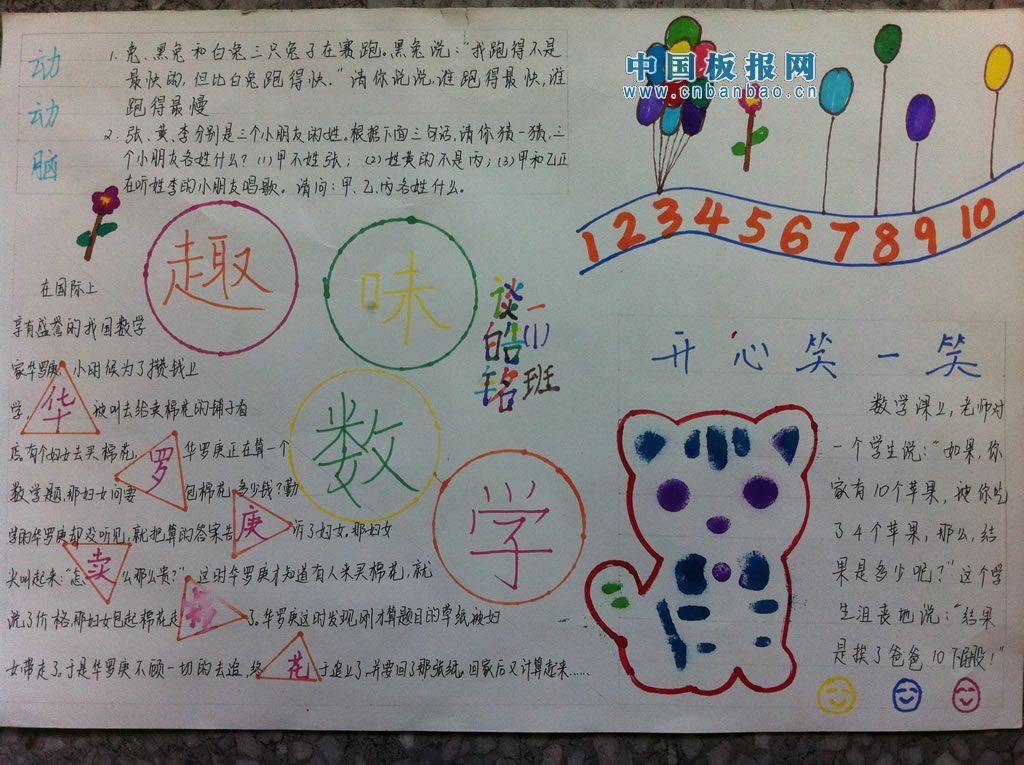 动动脑
1. 兔、黑兔和白兔三只兔子在赛跑。黑兔说："我跑得不是
最快的,但比白兔跑得快。"请你说说,谁跑得最快,谁
跑得最慢
2. 张、黄、李分别是三个小朋友的姓。根据下面三句话,请你猜一猜,三
个小朋友各姓什么？(1)甲不姓张；(2)姓黄的不是丙；(3)甲和乙正
在听姓李的小朋友唱歌。请问：甲、乙、丙各姓什么。
中国板报网
www.cnbanbao.cn
1 2 3 4 5 6 7 8 9 10
趣味数学
一(1)班
谈皓铭
在国际上
享有盛誉的我国数学
家华罗庚,小时候为了攒钱上
学,
被叫去给卖棉花的铺子看
店,有个妇女去买棉花,
华罗庚正在算一个
数学题,那妇女问要
包棉花,多少钱？勤
学的华罗庚却没听见,就把算的答案告
诉了妇女,那妇女
尖叫起来："怎
么那么贵？"这时华罗庚才知道有人来买棉花,就
说了价格,那妇女包起棉花走
了。华罗庚这时发现,刚才算题目的草纸被妇
女带走了,于是华罗庚不顾一切的去追,终
于追上了,并要回了那张纸,回家后又计算起来……
华
罗
庚
卖
棉
花
开心笑一笑
数学课上,老师对
一个学生说："如果,你
家有10个苹果,被你吃
了4个苹果,那么,结
果是多少呢？"这个学
生沮丧地说："结果
是挨了爸爸10下屁股！"